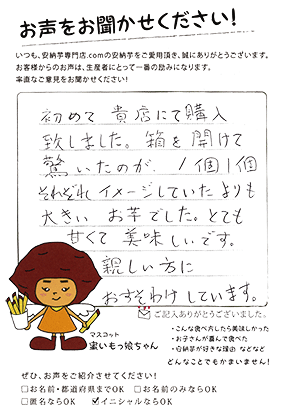 お声をお聞かせください!
いつも、安納芋専門店.comの安納芋をご愛用頂き、誠にありがとうございます。
お客様からのお声は、生産者にとって一番の励みになります。
率直なご意見をお聞かせください!
初めて 貴店にて購入
致しました。箱を開けて
驚いたのが、1個1個
それぞれイメージしていたよりも
大きい お芋でした。とても
甘くて 美味しいです。
親しい方に
おすそわけしています。
ご記入ありがとうございました。
マスコット
蜜いもっ娘ちゃん
・こんな食べ方したら美味しかった
・お子さんが喜んで食べた
・安納芋が好きな理由 などなど
どんなことでもかまいません!
ぜひ、お声をご紹介させてください!
□お名前・都道府県までOK □お名前のみならOK
□匿名ならOK ☑イニシャルならOK